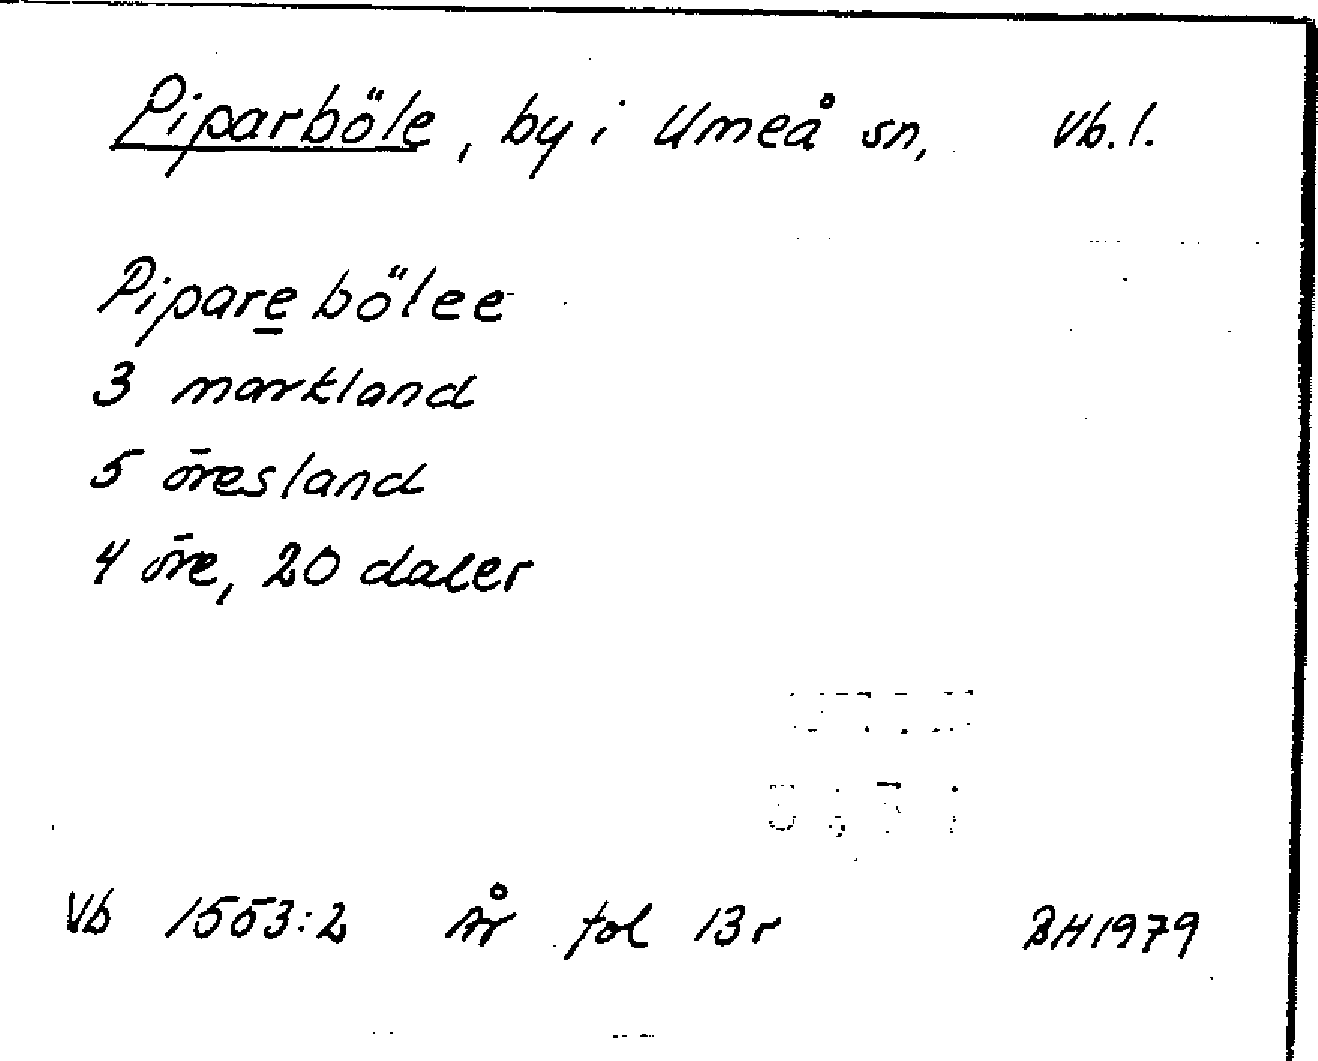 Piparböle, by i Umeå sn, Vb. l.
Pipare bölee
3 markland
5 öresland
4 öre, 20 daler
Vb 1553:2 år fol 13r BH 1979